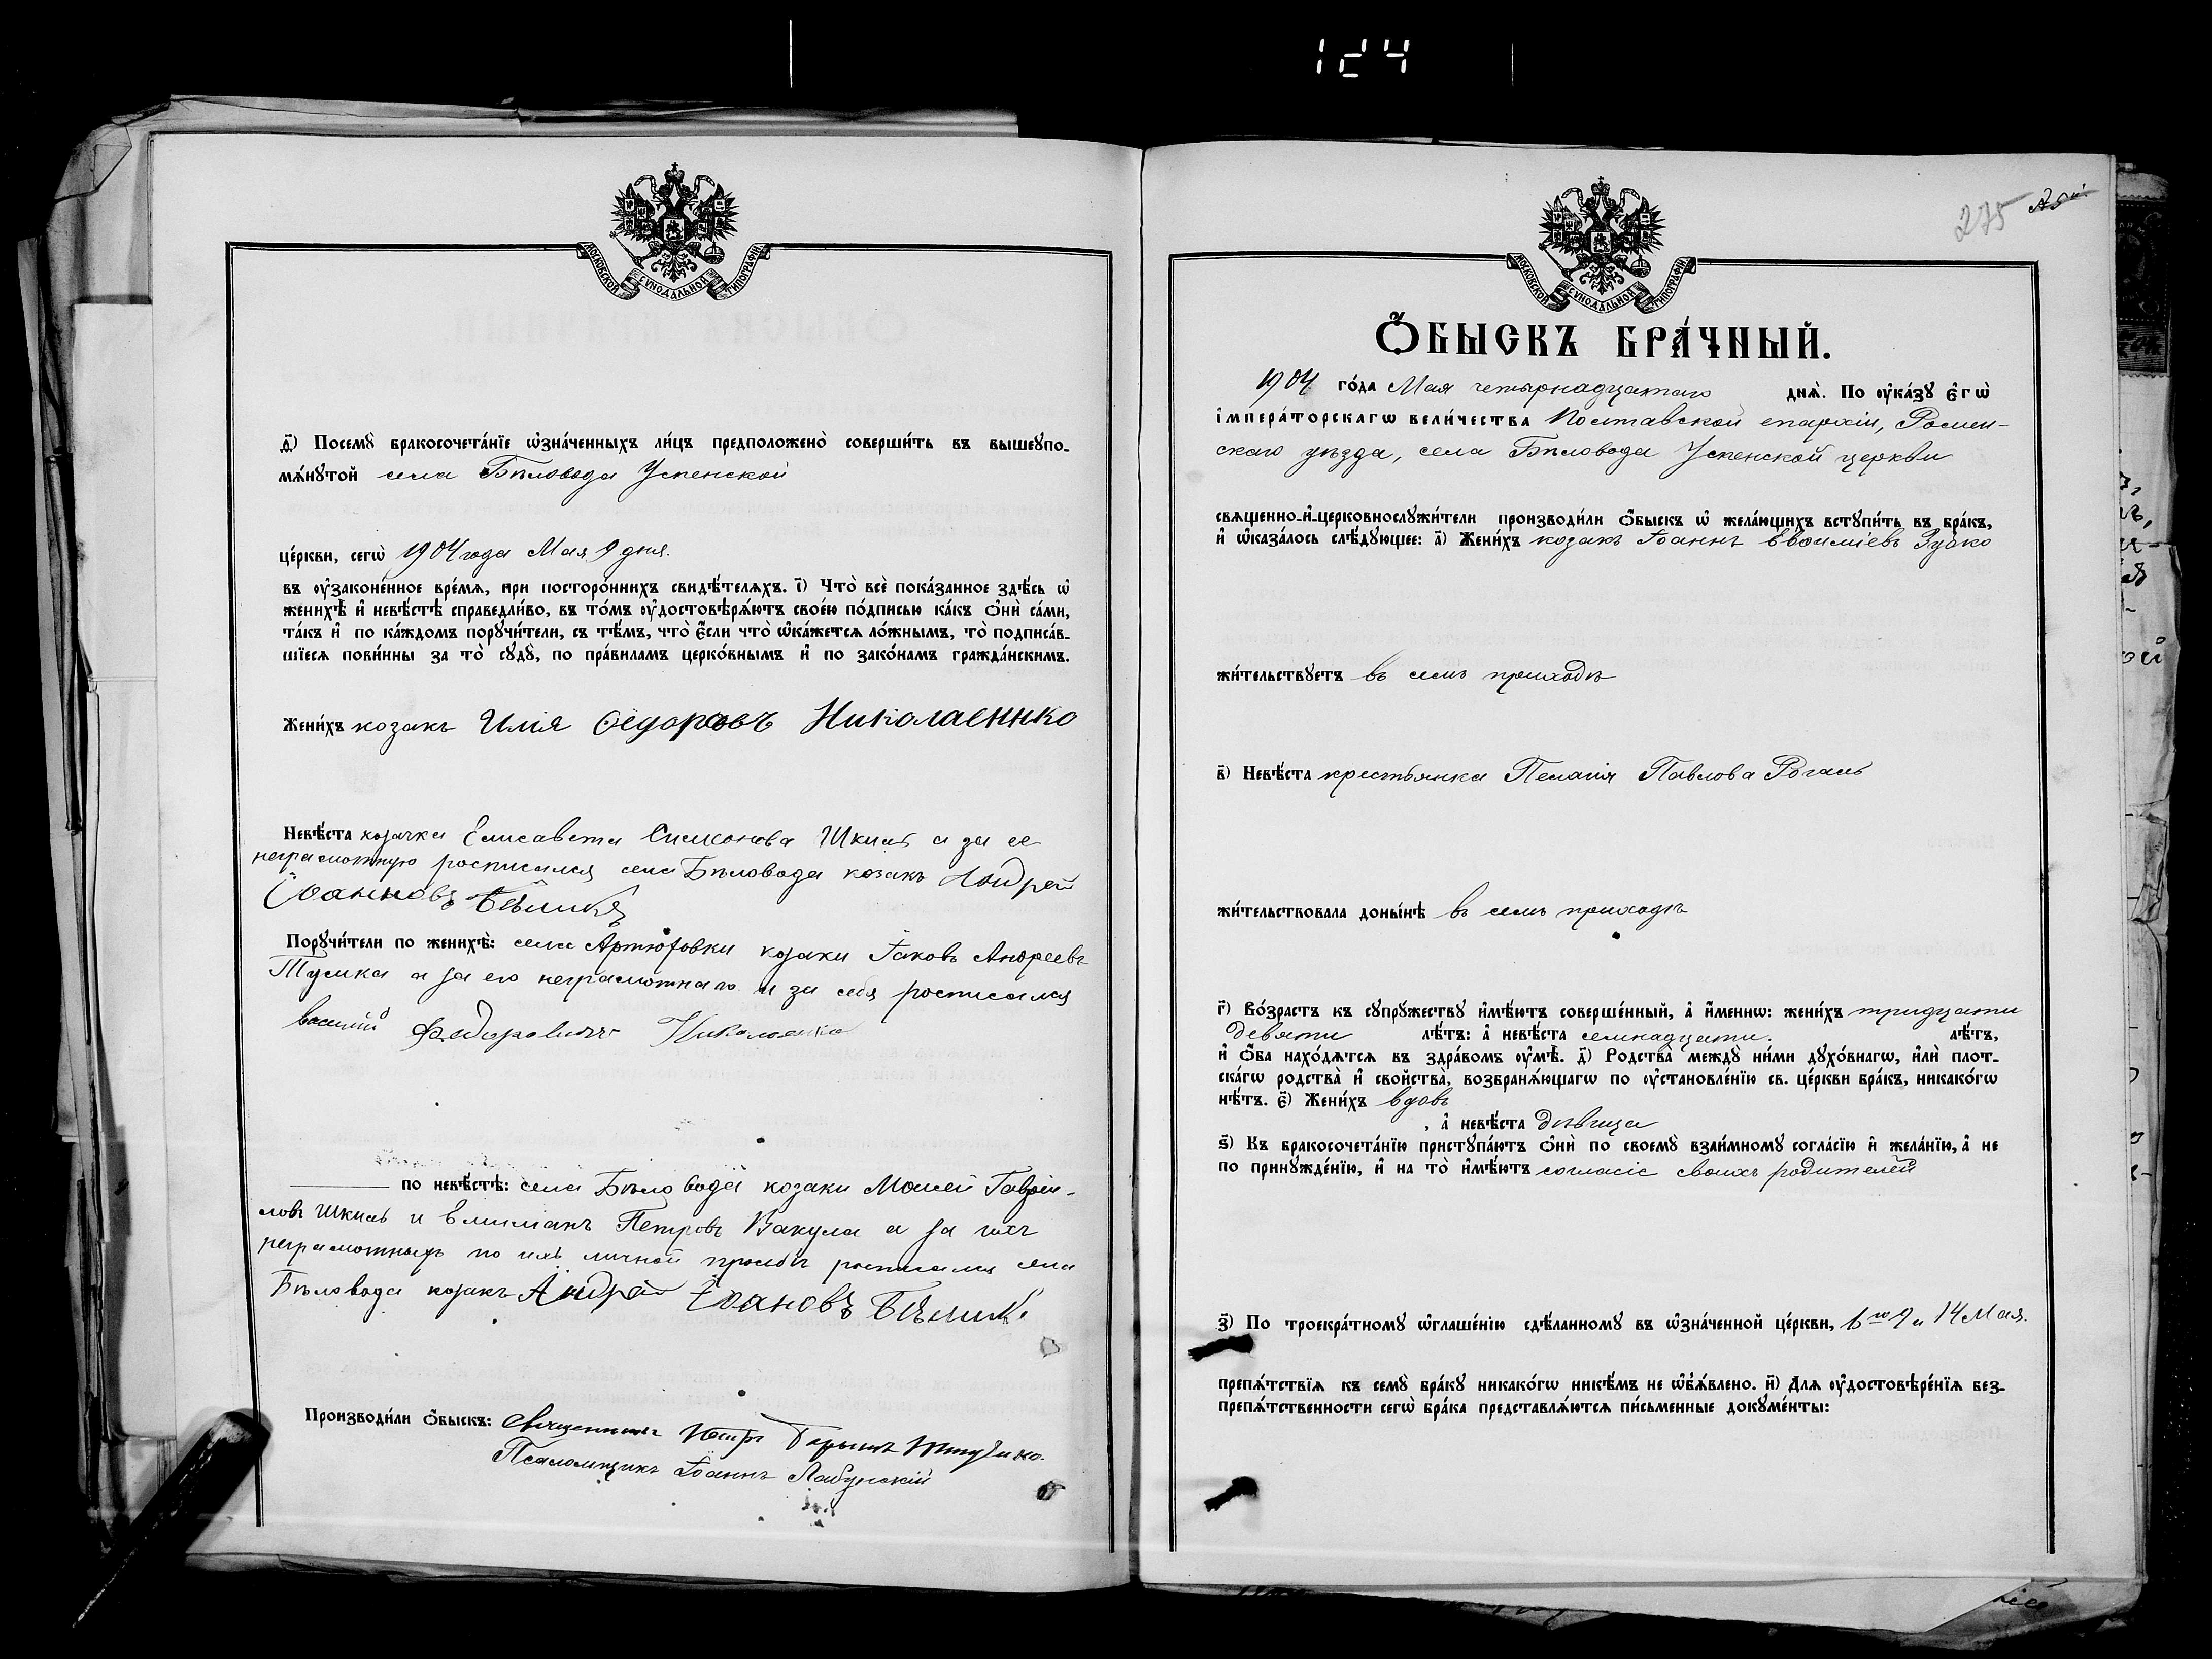 124
МОСКОВСКОЙ СѴНОДАЛЬНОЙ ТИПОГРАФІИ
д҃) Посемꙋ̀ бракосочета́нїе ѡ҆зна́ченныхъ ли́цъ предположено̀ соверши́ть въ вышеꙋпо-
мѧ́нꙋтой села Бѣловода Успенской
це́ркви, сегѡ̀ 1904 года Мая 9 дня.
въ ᲂу҆зако́не́нное вре́мѧ, при посторо́ннихъ свидѣ́телѧхъ. і҃) Что̀ всѐ пока́занное здѣ́сь ѡ҆
женихѣ̀ и҆ невѣ́стѣ справедли́во, въ то́мъ ᲂу҆достовѣрѧ́ютъ свое́ю по́дписью ка́къ ѻ҆нѝ са́ми,
та́къ и҆ по ка́ждомъ порꙋчи́тели, съ тѣ́мъ, что̀ є҆́сли что̀ ѡ҆ка́жетсѧ ло́жнымъ, то̀ подписа́в-
шїесѧ пови́нны за то̀ сꙋдꙋ̀, по пра́виламъ церко́внымъ и҆ по зако́намъ гражда́нскимъ.
Жени́хъ козакъ Илія Ѳедоровъ Николаеннко
Невѣ́ста козачка Елисавета Симонова Шкиль а за ее
неграмотную росписался села Бѣловода козакъ Андрей
Іоанновъ Бѣликъ
Порꙋчи́тели по женихѣ̀: села Артюховки козаки Іаковъ Андреевъ
а за его неграмотнаго и за себя росписался
василий Федаровичъ Николаенко
по невѣ́стѣ: села Бѣловода козаки Моисей Гаврiи-
ловъ Шкиль и Емилианъ Петровъ Вакула а за ихъ
неграмотныхъ по ихъ личной просьбѣ росписался села
Бѣловода козакъ Андрей Іоановъ Бѣликъ
Производи́ли ѻ҆́быскъ: Священникъ Петръ
Псаломщикъ Іоаннъ Лабунскій
275
МОСКОВСКОЙ СѴНОДАЛЬНОЙ ТИПОГРАФІИ
Ѻ҆́БЫСКЪ БРА́ЧНЫЙ.
1904 го́да Мая четырнадцатаго днѧ̀. По ᲂу҆ка́зꙋ є҆гѡ̀
і҆мпера́торскагѡ вели́чества Полтавской епархіи, Ромен-
скаго уѣзда, села Бѣловода Успенской церкви
свѧщенно-и҆-церковнослꙋжи́тели производи́ли ѻ҆́быскъ ѡ҆ жела́ющихъ встꙋпи́ть въ бра́къ,
и҆ ѡ҆каза́лось слѣ́дꙋющее: а҃) Жени́хъ козакъ Іоаннъ Евѳиміевъ Зубко
жи́тельствꙋетъ въ семъ приходѣ
в҃) Невѣ́ста крестьянка Пелагія Павлова Рогаль
жи́тельствовала доны́нѣ въ семъ приходѣ
г҃) Во́зрастъ къ сꙋпрꙋ́жествꙋ и҆мѣ́ютъ соверше́нный, а҆ и҆́менно: жени́хъ тридцати
девяти лѣ́тъ: а҆ невѣ́ста семнадцати. лѣ́тъ,
и҆ ѻ҆́ба нахо́дѧтсѧ въ здра́вомъ ᲂу҆мѣ̀. д҃) Родства̀ междꙋ̀ ни́ми дꙋхо́внагѡ, и҆лѝ плот-
ска́гѡ родства̀ и҆ сво́йства̀, возбранѧ́ющагѡ по ᲂу҆становле́нїю св. це́ркви бра́къ, никако́гѡ
нѣ́тъ. є҃) Жени́хъ вдовъ
, а҆ невѣ́ста дѣвица
ѕ҃) Къ бракосочета́нїю пристꙋпа́ютъ ѻ҆нѝ по своемꙋ̀ взаи́мномꙋ согла́сїю и҆ жела́нїю, а҆ не
по принꙋжде́нїю, и҆ на то̀ и҆мѣ́ютъ согласіе своихъ родителей
з҃) По троекра́тномꙋ ѡ҆глаше́нїю сдѣ́ланномꙋ въ ѡ҆зна́ченной це́ркви, 6го 9 и 14 Мая.
препѧ́тствїѧ къ семꙋ̀ бра́кꙋ никако́гѡ никѣ́мъ не ѡ҆б̾ѧ́влено. и҃) Длѧ ᲂу҆достовѣре́нїѧ без-
препѧ́тственности сегѡ̀ бра́ка представлѧ́ютсѧ пи́сьменные докꙋме́нты: